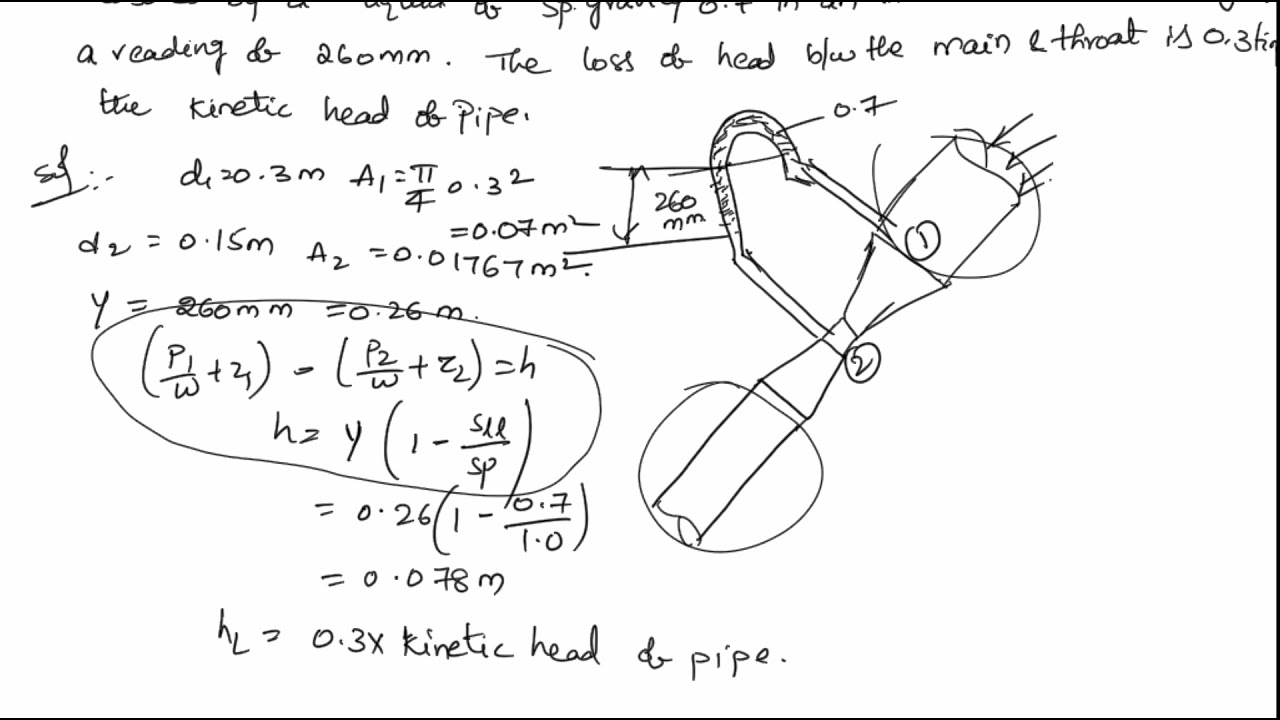 a reading of 260mm. The loss of head b/w the main & throat is 0.3
the kinetic head of Pipe.
Sol:- d₁=0.3m A₁=π/4 0.3²
=0.07m²
d₂ = 0.15m A₂ =0.01767m².
y = 260mm =0.26m.
(P₁/w + z₁) - (P₂/w + z₂) = h
h = y (1 - Sll/Sp)
= 0.26(1 - 0.7/1.0)
= 0.078m
hL = 0.3x kinetic head of pipe.
0.7
260
mm
1
2